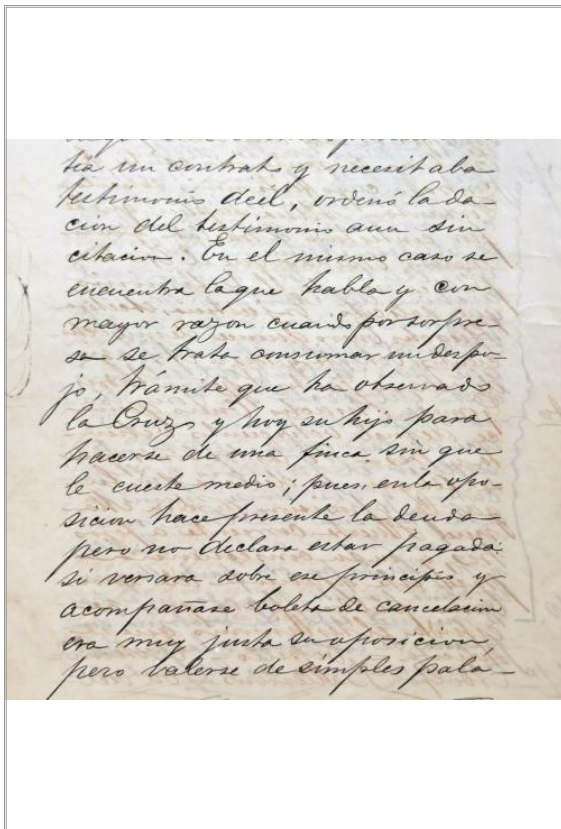 tia un contrato y necesitaba
testimonio deél, ordenó la da-
cion del testimonio aun sin
citacion. En el mismo caso se
encuentra la que habla y con
mayor razon cuando por sorpre-
sa se trata consumar un despo-
jo, trámite que ha observado
la Cruz y hoy su hijo para
hacerse de una finca sin que
le cueste medio; pues en la opo-
sicion hace presente la deuda
pero no declara estar pagada:
si versara sobre ese principio y
acompañase boleta de cancelacion
era muy justa su oposicion,
pero valerse de simples pala-